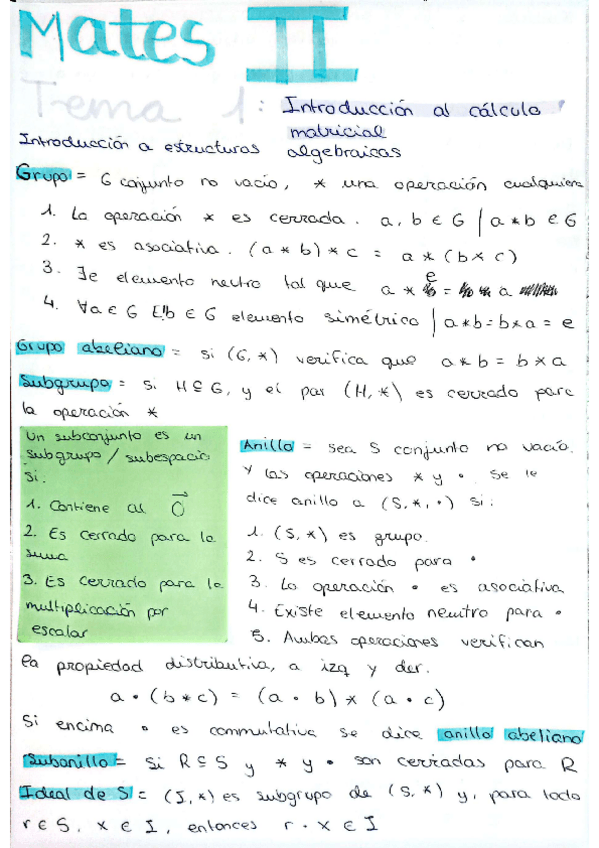 Mates II
Tema 1: Introducción al cálculo
matricial
Introducción a estructuras algebraicas
Grupo = G conjunto no vacío, * una operación cualquiera
1. La operación * es cerrada. a, b ∈ G | a * b ∈ G
2. * es asociativa. (a * b) * c = a * (b * c)
3. ∃e elemento neutro tal que a * e = a
4. ∀a ∈ G ∃!b ∈ G elemento simétrico | a*b = b*a = e
Grupo abeliano = si (G, *) verifica que a*b = b*a
Subgrupo = si H ⊆ G, y el par (H, *) es cerrado para
la operación *
Un subconjunto es un
subgrupo / subespacio
si:
1. Contiene al 0⃗
2. Es cerrado para la
suma
3. Es cerrado para la
multiplicación por
escalar
Anillo = sea S conjunto no vacío.
Y las operaciones * y · se le
dice anillo a (S, *, ·) si:
1. (S, *) es grupo.
2. S es cerrado para ·
3. La operación · es asociativa
4. Existe elemento neutro para ·
5. Ambas operaciones verifican
la propiedad distributiva, a izq y der.
a · (b * c) = (a · b) * (a · c)
Si encima · es conmutativa se dice anillo abeliano
Subanillo = si R ⊆ S y * y · son cerradas para R
Ideal de S = (I, *) es subgrupo de (S, *) y, para todo
r ∈ S, x ∈ I, entonces r · x ∈ I